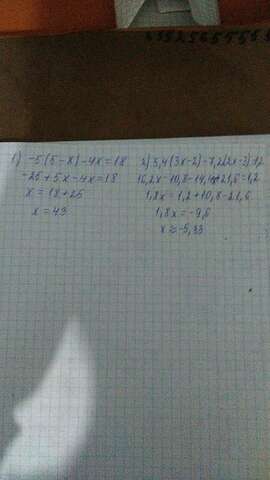 1) -5(5-x)-4x=18
-25+5x-4x=18
x=18+25
x=43
2) 5,4(3x-2)-7,2(2x-3)=1,2
16,2x-10,8-14,4x+21,6=1,2
1,8x=1,2+10,8-21,6
1,8x=-9,6
x≈-5,33